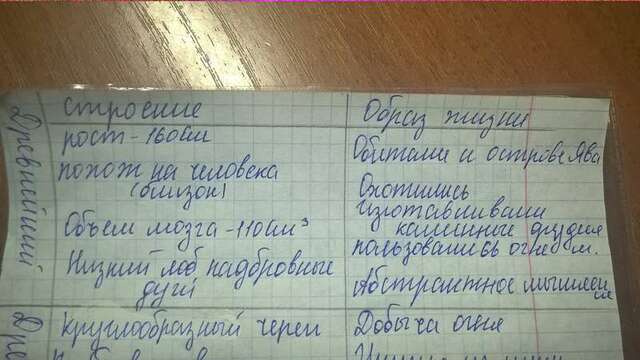 Древнейший
Строение
рост - 160см
похож на человека
(близок)
Объём мозга - 1100см³
Низкий лоб надбровные
дуги
Образ жизни
Обитали и острове Ява
Охотились
изготавливали
каменные орудия
пользовались огнём.
Абстрактное мышление
Круглообразный череп
Добыча огня